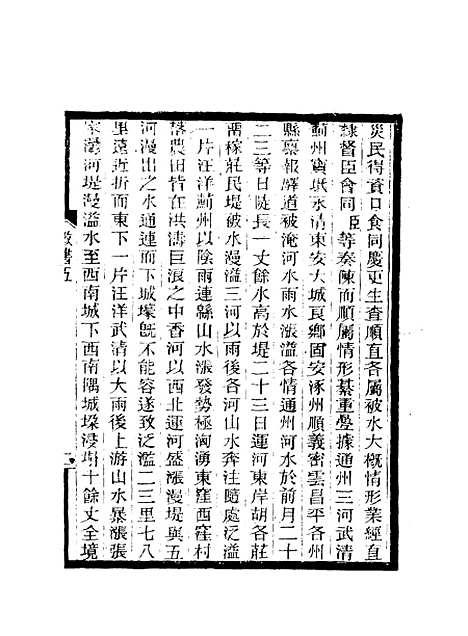 災民得資口食同慶更生查順直各屬被水大概情形業經直
隸督臣會同臣等奏陳而順屬情形綦重疊據通州三河武清
薊州寶坻永清東安大城良鄉固安涿州順義密雲昌平各州
縣稟報驛道被淹河水雨水漲溢各情通州河水於前月二十
二三等日陡長一丈餘水高於堤二十三日運河東岸胡各莊
需稼莊民堤被水漫溢三河以雨後各河山水奔注隨處泛溢
一片汪洋薊州以陰雨連縣山水漲發勢極洶湧東窪西窪村
落農田皆在洪濤巨浪之中香河以西北運河盛漲漫堤與五
河漫出之水通連而下城壕旣不能容遂致泛濫二三里七八
里遠近折而東下一片汪洋武清以大雨後上游山水暴漲張
家灣河堤漫溢水至西南城下西南隅城垛浸塌十餘丈全境